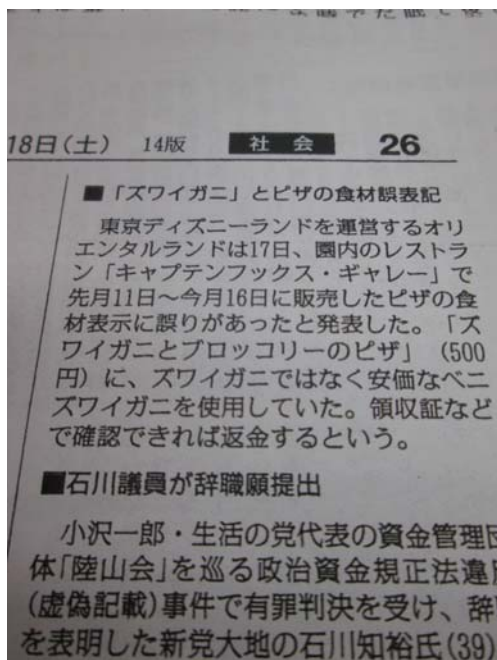 18日(土) 14版 社会 26
■「ズワイガニ」とピザの食材誤表記
東京ディズニーランドを運営するオリ
エンタルランドは17日、園内のレストラ
ン「キャプテンフックス・ギャレー」で
先月11日～今月16日に販売したピザの食
材表示に誤りがあったと発表した。「ズ
ワイガニとブロッコリーのピザ」(500
円)に、ズワイガニではなく安価なベニ
ズワイガニを使用していた。領収証など
で確認できれば返金するという。
■石川議員が辞職願提出
小沢一郎・生活の党代表の資金管理団
体「陸山会」を巡る政治資金規正法違
(虚偽記載)事件で有罪判決を受け、辞
を表明した新党大地の石川知裕氏(39)